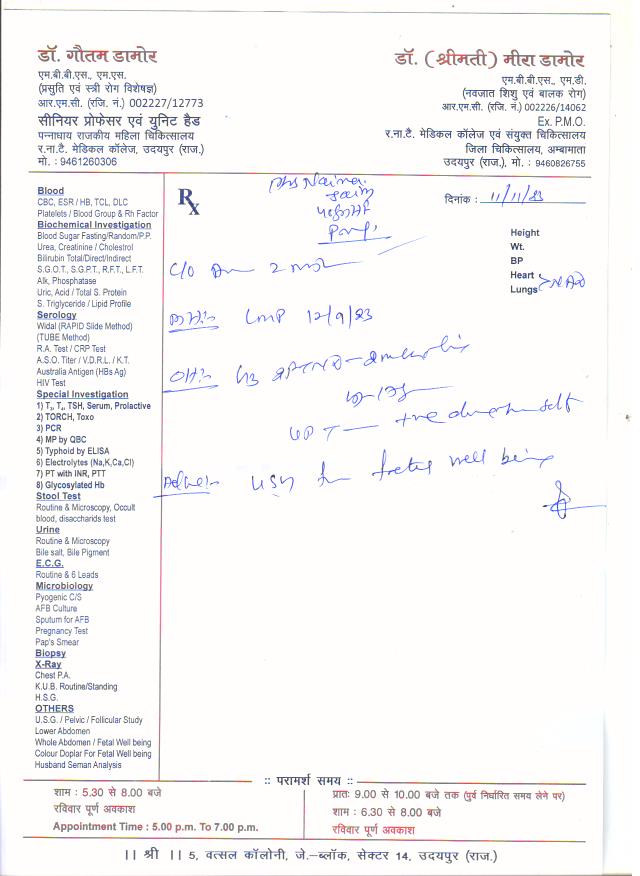 डॉ. गौतम डामोर
एम.बी.बी.एस., एम.एस.
(प्रसुति एवं स्त्री रोग विशेषज्ञ)
आर.एम.सी. (रजि. नं.) 002227/12773
सीनियर प्रोफेसर एवं युनिट हैड
पन्नाधाय राजकीय महिला चिकित्सालय
र.ना.टै. मेडिकल कॉलेज, उदयपुर (राज.)
मो. : 9461260306
डॉ. (श्रीमती) मीरा डामोर
एम.बी.बी.एस., एम.डी.
(नवजात शिशु एवं बालक रोग)
आर.एम.सी. (रजि. नं.) 002226/14062
Ex. P.M.O.
र.ना.टै. मेडिकल कॉलेज एवं संयुक्त चिकित्सालय
जिला चिकित्सालय, अम्बामाता
उदयपुर (राज.), मो. : 9460826755
Blood
CBC, ESR / HB, TCL, DLC
Platelets / Blood Group & Rh Factor
Biochemical Investigation
Blood Sugar Fasting/Random/P.P.
Urea, Creatinine / Cholestrol
Bilirubin Total/Direct/Indirect
S.G.O.T., S.G.P.T., R.F.T., L.F.T.
Alk, Phosphatase
Uric, Acid / Total S. Protein
S. Triglyceride / Lipid Profile
Serology
Widal (RAPID Slide Method)
(TUBE Method)
R.A. Test / CRP Test
A.S.O. Titer / V.D.R.L. / K.T.
Australia Antigen (HBs Ag)
HIV Test
Special Investigation
1) T₃, T₄, TSH, Serum, Prolactive
2) TORCH, Toxo
3) PCR
4) MP by QBC
5) Typhoid by ELISA
6) Electrolytes (Na,K,Ca,Cl)
7) PT with INR, PTT
8) Glycosylated Hb
Stool Test
Routine & Microscopy, Occult
blood, disaccharids test
Urine
Routine & Microscopy
Bile salt, Bile Pigment
E.C.G.
Routine & 6 Leads
Microbiology
Pyogenic C/S
AFB Culture
Sputum for AFB
Pregnancy Test
Pap's Smear
Biopsy
X-Ray
Chest P.A.
K.U.B. Routine/Standing
H.S.G.
OTHERS
U.S.G. / Pelvic / Follicular Study
Lower Abdomen
Whole Abdomen / Fetal Well being
Colour Doplar For Fetal well being
Husband Seman Analysis
Rx
Naina
दिनांक : 11/11/23
Height
Wt.
BP
Heart
Lungs NAD
C/O 2
LMP 12/9/23
UPT +ve
Advice:- USG for fetal well being
:: परामर्श समय ::
शाम : 5.30 से 8.00 बजे
रविवार पूर्ण अवकाश
Appointment Time : 5.00 p.m. To 7.00 p.m.
प्रातः 9.00 से 10.00 बजे तक (पुर्व निर्धारित समय लेने पर)
शाम : 6.30 से 8.00 बजे
रविवार पूर्ण अवकाश
|| श्री || 5, वत्सल कॉलोनी, जे.–ब्लॉक, सेक्टर 14, उदयपुर (राज.)